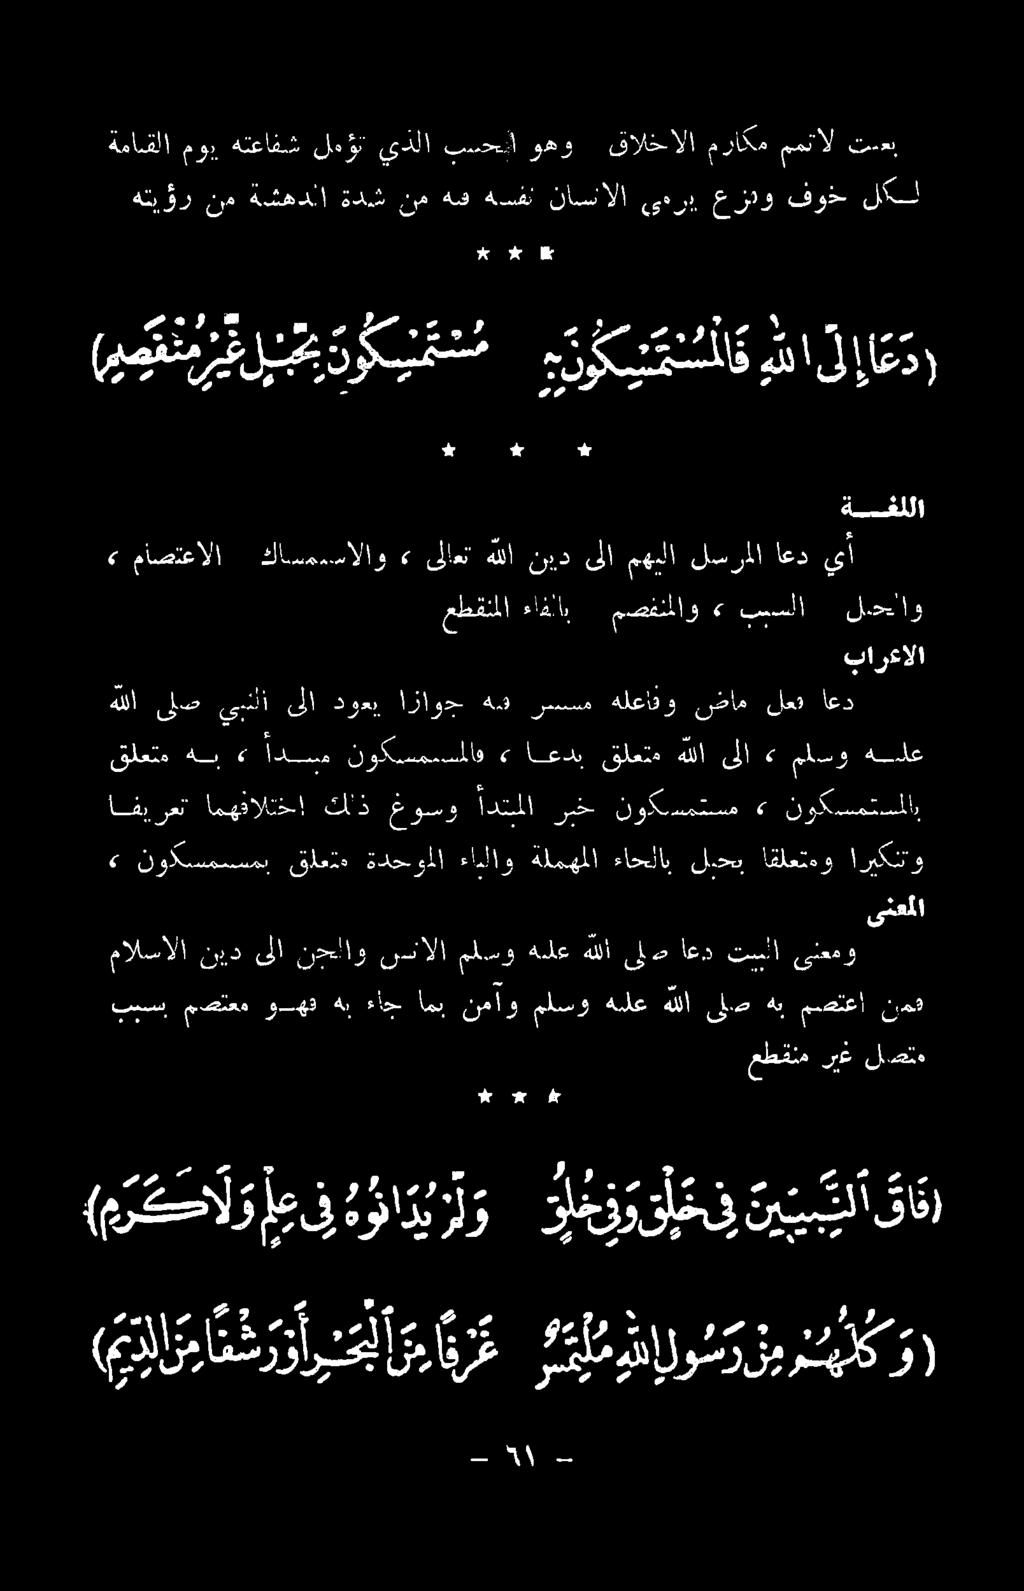 بعثت لاتمم مكارم الاخلاق وهو الحبيب الذي تؤمل شفاعته يوم القيامة
لــكل خوف وفزع يرمي الانسان نفسه فيه من شدة الدهشة من رؤيته
★ ★ ★
(دَعَا إِلَى اللهِ فَالْمُسْتَمْسِكُونَ بِهِ مُسْتَمْسِكُونَ بِحَبْلٍ غَيْرِ مُنْفَصِمِ)
★ ★ ★
اللغــــة
أي دعا المرسل اليهم الى دين الله تعالى ، والاستمساك الاعتصام ،
والحبل السبب ، والمنفصم بالفاء المنقطع
الاعراب
دعا فعل ماض وفاعله مستتر فيه جوازا يعود الى النبي صلى الله
عليــه وسلم ، الى الله متعلق بدعــا ، فالمستمسكون مبتــدأ ، بــه متعلق
بالمستمسكون ، مستمسكون خبر المبتدأ وسوغ ذلك اختلافهما تعريفــا
وتنكيرا ومتعلقا بحبل بالحاء المهملة والباء الموحدة متعلق بمستمسكون ،
المعنى
ومعنى البيت دعا صلى الله عليه وسلم الانس والجن الى دين الاسلام
فمن اعتصم به صلى الله عليه وسلم وآمن بما جاء به فهــو معتصم بسبب
متصل غير منقطع
★ ★ ★
(فَاقَ النَّبِيِّينَ فِي خَلْقٍ وَفِي خُلُقٍ وَلَمْ يُدَانُوهُ فِي عِلْمٍ وَلَا كَرَمِ)
(وَكُلُّهُمْ مِنْ رَسُولِ اللهِ مُلْتَمِسٌ غَرْفًا مِنَ الْبَحْرِ أَوْ رَشْفًا مِنَ الدِّيَمِ)
– ٦١ –